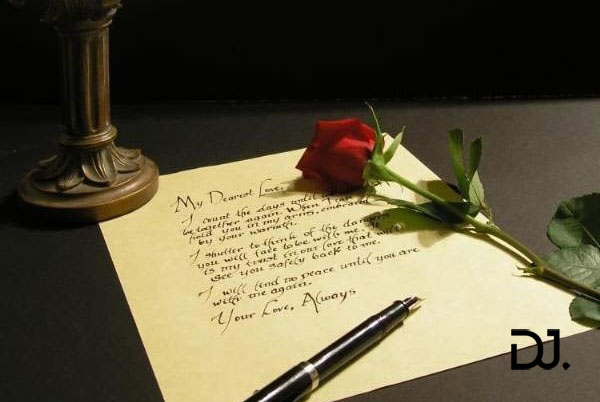 My Dearest Love,
I count the days until
be together again. When I
hold you in my arms, embraced
by your warmth.
I shutter to think of the
you will face to be with me.
is my trust in our love that
see you safely back to me.
I will find no peace until you are
with me again.
Your Love, Always
DJ.